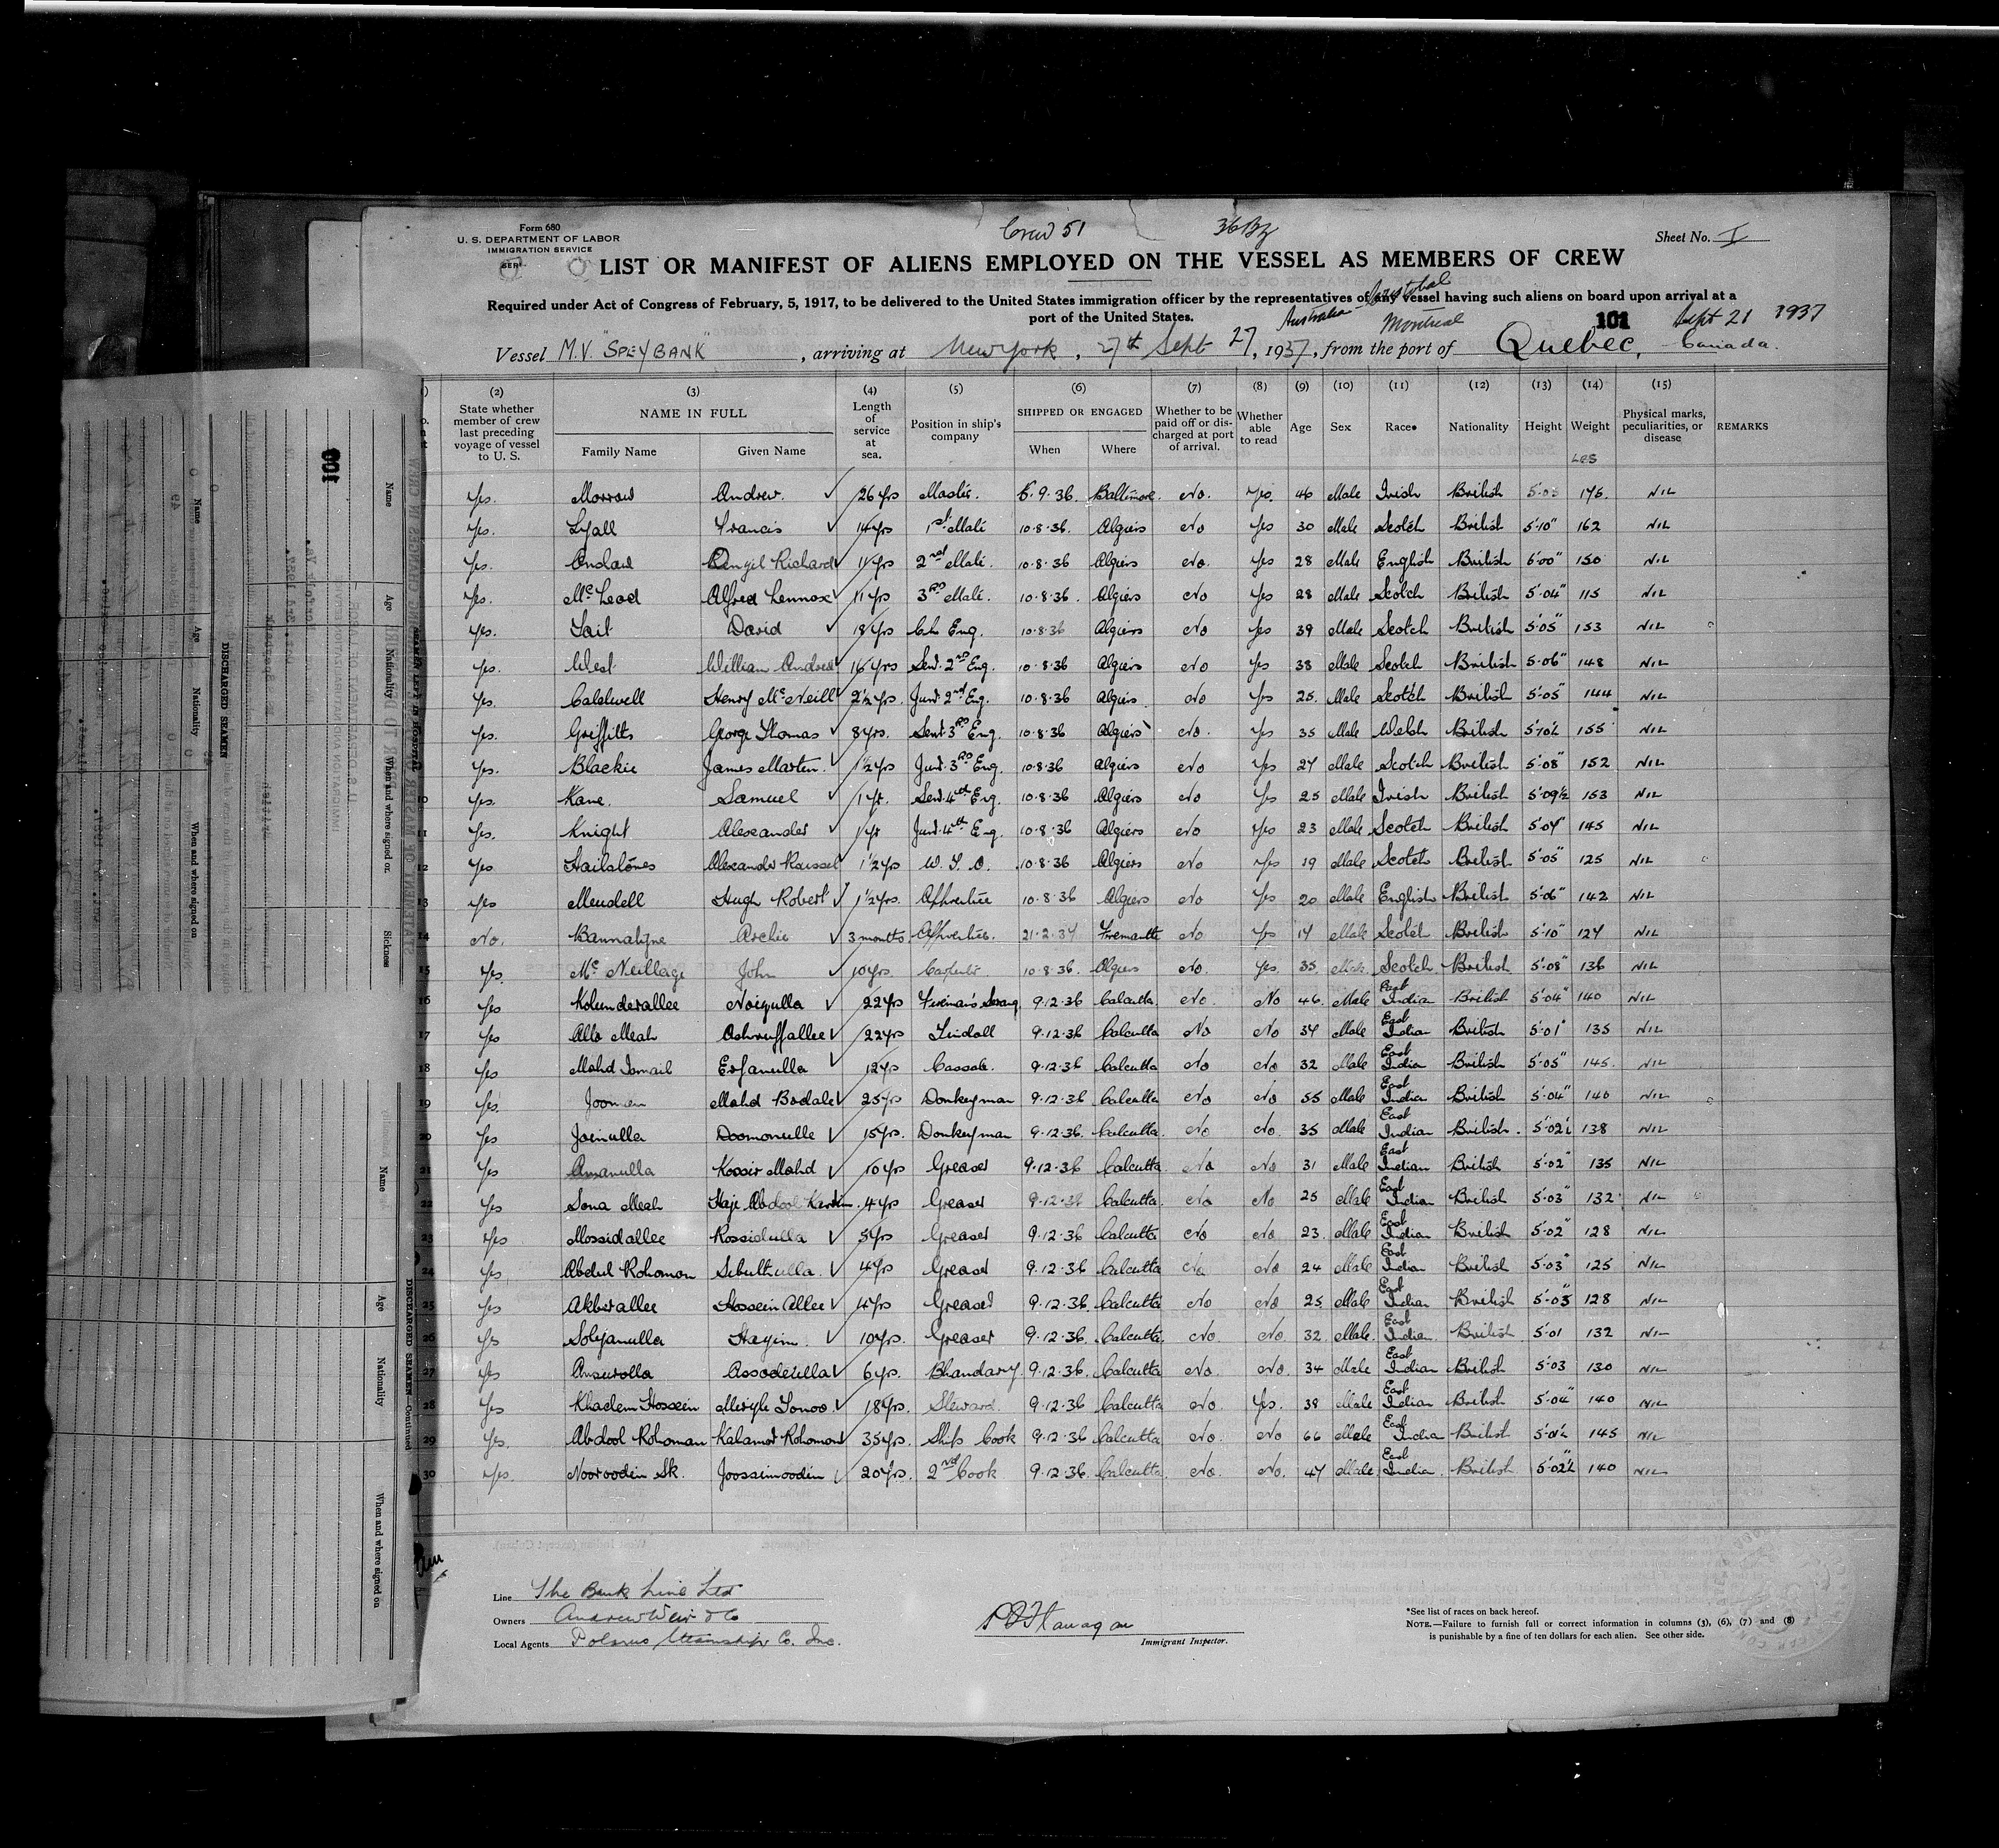 Form 680
U. S. DEPARTMENT OF LABOR
IMMIGRATION SERVICE
Crew 51
Sheet No. I
LIST OR MANIFEST OF ALIENS EMPLOYED ON THE VESSEL AS MEMBERS OF CREW
Required under Act of Congress of February, 5, 1917, to be delivered to the United States immigration officer by the representatives of any vessel having such aliens on board upon arrival at a
port of the United States.
Australia Cristobal Montreal 101 Sept 21 1937
Vessel M.V. "SPEYBANK", arriving at New York, 27th Sept 27, 1937, from the port of Quebec, Canada.
(2) (3) (4) (5) (6) (7) (8) (9) (10) (11) (12) (13) (14) (15)
State whether member of crew last preceding voyage of vessel to U. S. NAME IN FULL Family Name Given Name Length of service at sea. Position in ship's company SHIPPED OR ENGAGED When Where Whether to be paid off or discharged at port of arrival. Whether able to read Age Sex Race* Nationality Height Weight LBS Physical marks, peculiarities, or disease REMARKS
Yes. Morrow Andrew. 26 yrs Master. 6.9.36. Baltimore. No. Yes. 46 Male Irish British 175. NIL
Yes. Lyall Francis 14 yrs 1st Mate 10.8.36. Algiers No Yes 30 Male Scotch British 5'10" 162 NIL
Yes. Onslow Richard 11 yrs 2nd Mate. 10.8.36 Algiers No. Yes 28 Male English British 6'00" 150 NIL
Yes. McLeod Alfred Lennox 11 yrs 3rd Mate. 10.8.36. Algiers No Yes 28 Male Scotch British 5'04" 115 NIL
Yes. Tait David 18 yrs Ch Eng. 10.8.36 Algiers No Yes 39 Male Scotch British 5'05" 153 NIL
Yes. West William Andrew 16 yrs Senr. 2nd Eng. 10.8.36 Algiers No Yes 38 Male Scotch British 5'06" 148 NIL
Yes. Caldwell Henry McNeill 2½ yrs. Junr. 2nd Eng. 10.8.36 Algiers No Yes 25. Male Scotch British 5'05" 144 NIL
Yes. Griffiths George Thomas 8 yrs. Senr. 3rd Eng. 10.8.36 Algiers No. Yes 35 Male Welsh British 5'10½ 155 NIL
Yes. Blackie James Marten. 1½ yrs Junr. 3rd Eng. 10.8.36 Algiers No Yes 27 Male Scotch British 5'08" 152 NIL
10 Yes. Kane. Samuel 1 yr. Senr. 4th Eng. 10.8.36 Algiers No Yes 25 Male Irish British 5'09½ 153 NIL
11 Yes. Knight Alexander 1 yr Junr. 4th Eng. 10.8.36 Algiers No Yes 23 Male Scotch British 5'07" 145 NIL
12 Yes Hailstones Alexander Russel 1½ yrs W. T. O. 10.8.36 Algiers No Yes 19 Male Scotch British 5'05" 125 NIL
13 Yes Mendell Hugh Robert 1½ yrs. Apprentice 10.8.36 Algiers No Yes 20 Male English British 5'06" 142 NIL
14 No. Bannatyne Archie 3 months Apprentice. 21.2.37 Fremantle No Yes 17 Male Scotch British 5'10" 127 NIL
15 Yes. McNeillage John 10 yrs. Carpenter 10.8.36. Algiers No. Yes. 35. Male Scotch British 5'08" 136 NIL
16 Yes Kolunderallee Noizulla 22 yrs Fireman's Serang 9.12.36 Calcutta No. No 46. Male East Indian British 5'04" 140 NIL
17 Yes Alto Meah Oshruffallee 22 yrs Tindall 9.12.36 Calcutta No No 37 Male East Indian British 5'01" 135 NIL
18 Yes Mohd Ismail Erfanulla 12 yrs Cassab. 9.12.36 Calcutta No No 32 Male East Indian British 5'05" 145. NIL
19 Yes. Jooman Mohd Bodale 25 yrs Donkeyman 9.12.36 Calcutta No No 55 Male East Indian British 5'04" 140 NIL
20 Yes Joinulla Doomonulle 15 yrs. Donkeyman 9.12.36. Calcutta. No No. 35 Male East Indian British. 5'02½ 138 NIL
21 Yes Amanulla Kossir Mahd 10 yrs Greaser 9.12.36 Calcutta No No 31 Male East Indian British 5'02" 135 NIL
22 Yes Sona Meah Haje Abdool Karim. 4 yrs Greaser 9.12.36 Calcutta. No No 25 Male East Indian British 5'03" 132 NIL
23 Yes Mossidallee Rossidulla 5 yrs Greaser 9.12.36 Calcutta No No 23. Male East Indian British 5'02" 128 NIL
24 Yes Abdul Rohoman Sibuthulla. 4 yrs Greaser 9.12.36 Calcutta No No 24 Male East Indian British 5'03" 125 NIL
25 Yes Akberallee Hossein Allee 4 yrs Greaser 9.12.36. Calcutta No No 25 Male East Indian British 5'03" 128 NIL
26 Yes Solyanulla Hayim. 10 yrs. Greaser 9.12.36. Calcutta. No. No. 32. Male. East Indian British 5'01 132 NIL
27 Yes Ansurolla Assodeulla 6 yrs. Bhandary 9.12.36. Calcutta No. No. 34 Male East Indian British 5'03 130 NIL
28 Yes Khadem Hossein 18 yrs. Steward. 9.12.36 Calcutta No. Yes. 38 Male East Indian British 5'04" 140 NIL
29 Yes. Abdool Rohoman Kalamod Rohomon 35 yrs. Ships Cook 9.12.36 Calcutta No. No 66 Male East India British 5'0½ 145 NIL
30 Yes. Nooroodin Sk. Joossimoodin 20 yrs. 2nd Cook 9.12.36. Calcutta. No. No. 47 Male. East Indian. British 5'02½" 140 NIL
Line The Bank Line Ltd
Owners Andrew Weir & Co
Local Agents Polarus Steamship Co. Inc.
Immigrant Inspector.
*See list of races on back hereof.
NOTE.—Failure to furnish full or correct information in columns (3), (6), (7) and (8)
is punishable by a fine of ten dollars for each alien. See other side.
101
Name Age Nationality When and where signed on Sickness
DISCHARGED SEAMEN
Name Age Nationality When and where signed on
DISCHARGED SEAMEN—Continued
Name Age Nationality When and where signed on